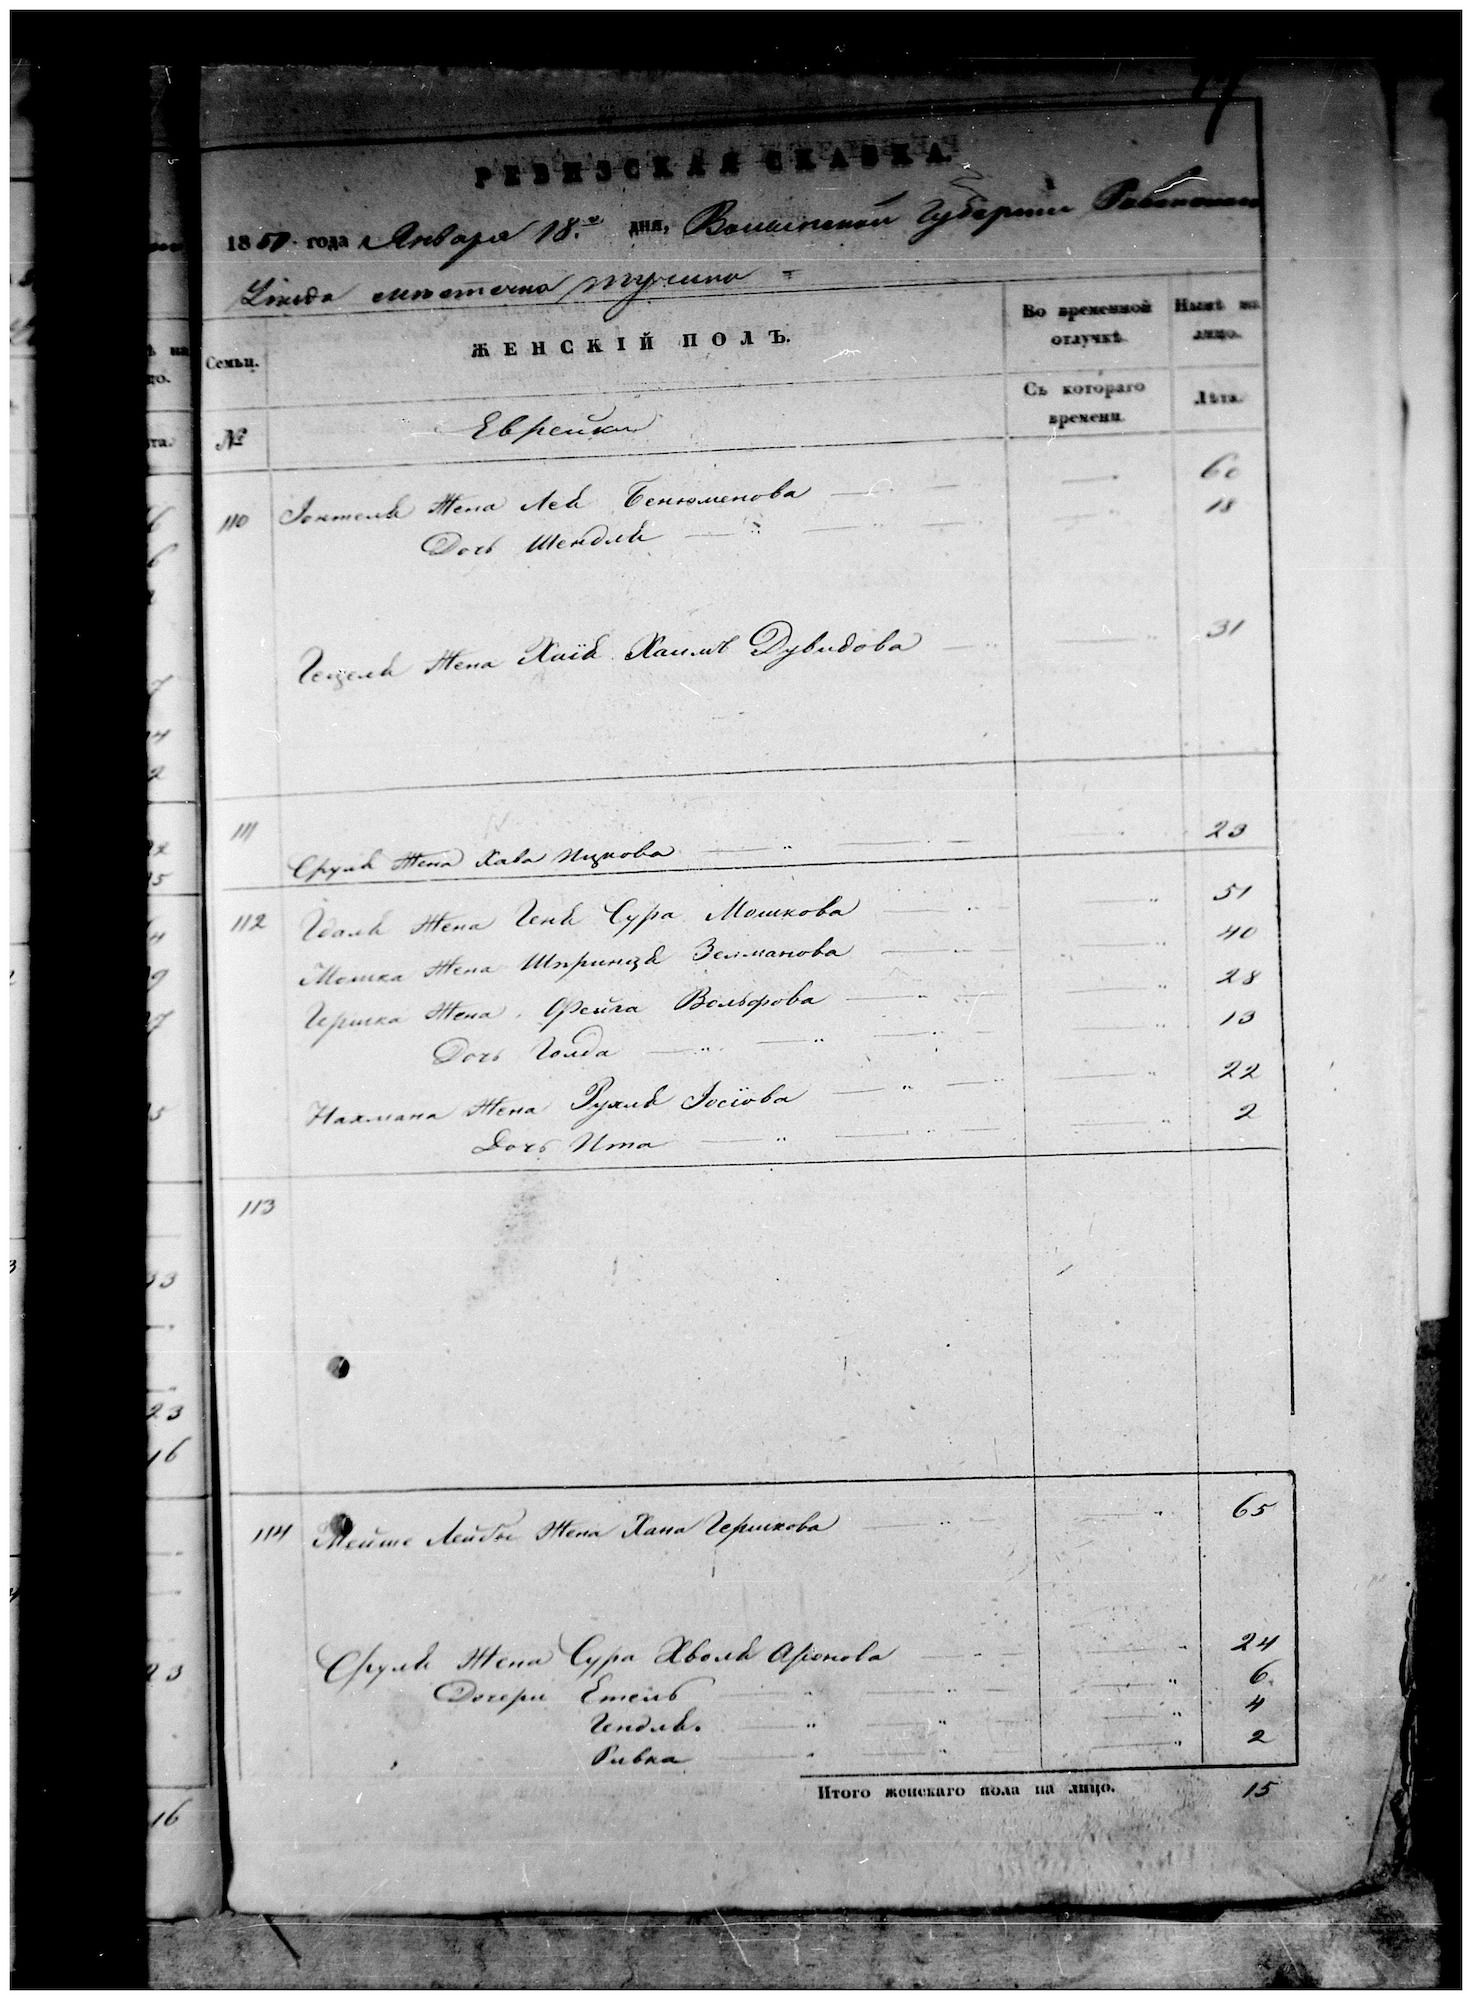 РЕВИЗСКАЯ СКАЗКА.
1851 года Января 18.го дня, Волынской Губернии Ровенского
Уезда местечка Тучина =
Семьи. ЖЕНСКІЙ ПОЛЪ. Во временной отлучкѣ. Нынѣ на лицо.
№ Еврейки Съ котораго времени. Лѣта.
110 Іонтеля Жена Лея Бенюменова 60
Дочь Шендля 18
Гецеля Жена Хая Хаимъ Дувидова 31
111
Сруля Жена Хава Ицкова 23
112 Гдаля Жена Геня Сура Мошкова 51
Мошка Жена Шпринца Зельманова 40
Гершка Жена Фейга Вольфова 28
Дочь Голда 13
Нахмана Жена Рухля Іосіова 22
Дочь Ита 2
113
114 Мейше Лейбы Жена Хана Гершкова 65
Сруля Жена Сура Хволя Аронова 24
Дочери Етель 6
Гендля 4
Ривка 2
Итого женскаго пола на лицо. 15